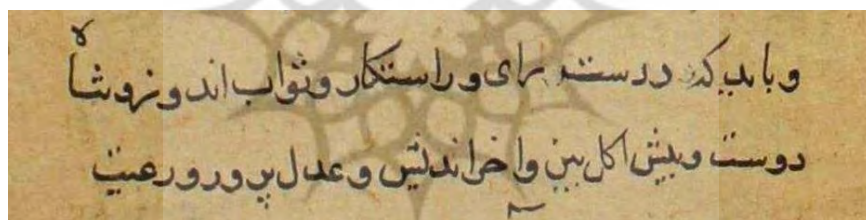 و باید که درست رای و راستکار و ثواب اندوز و شاه
دوست و پیش اکل بین و اخر اندیش و عدل پرور و رعیت